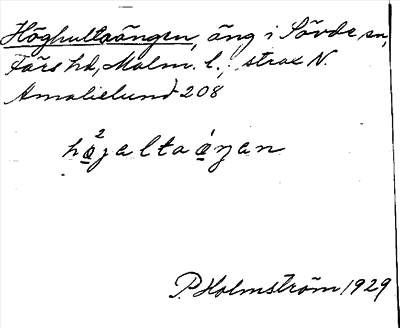 Höghultaängen, äng i Sövde sn,
Färs hd, Malm. l., strax N.
Amalielund 208
P. Holmström 1929